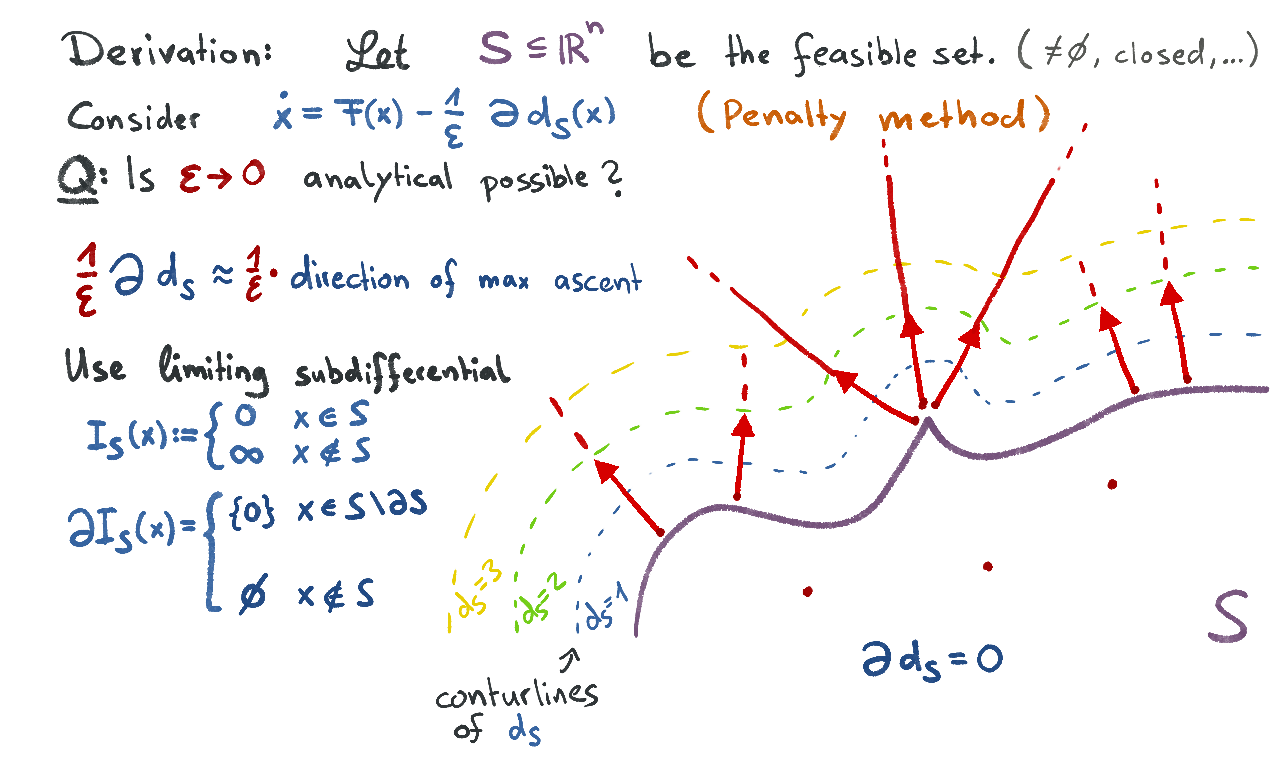 Derivation: Let S ⊆ ℝⁿ be the feasible set. (≠∅, closed,...)
Consider ẋ = F(x) - 1/ε ∂ d_S(x) (Penalty method)
Q: Is ε→0 analytical possible?
1/ε ∂ d_S ≈ 1/ε · direction of max ascent
Use limiting subdifferential
I_S(x):= { 0 x ∈ S
∞ x ∉ S
∂I_S(x)= { {0} x ∈ S\∂S
∅ x ∉ S
d_S=3
d_S=2
d_S=1
S
∂ d_S = 0
conturlines
of d_S